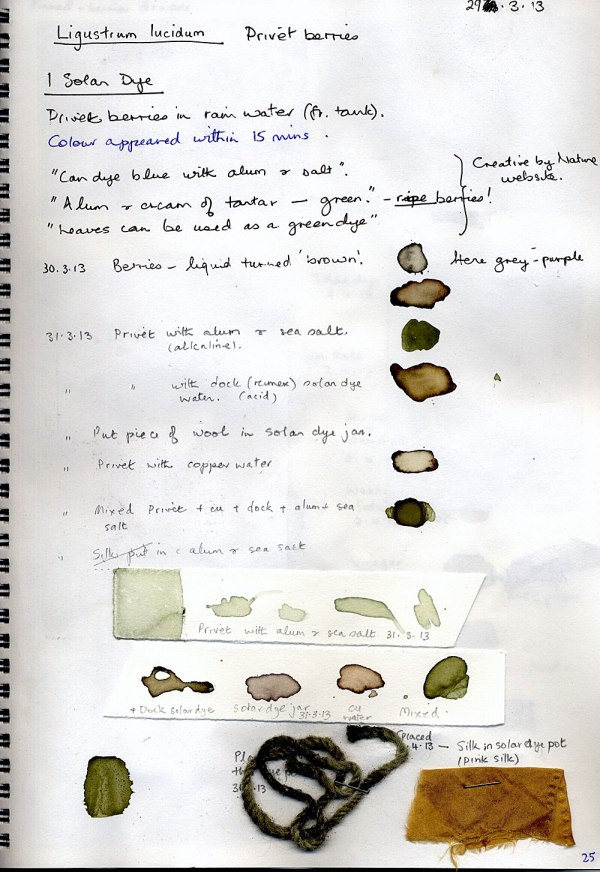 29.3.13
Ligustrum lucidum Privet berries
1 Solar Dye
Privet berries in rain water (fr. tank).
Colour appeared within 15 mins.
"Can dye blue with alum & salt".
"Alum & cream of tartar — green." - ripe berries!
"Leaves can be used as a green dye"
Creative by Nature
website.
30.3.13 Berries - liquid turned 'brown'. Here grey-purple
31.3.13 Privet with alum & sea salt.
(alkaline).
" " with dock (rumex) solar dye
water. (acid)
" Put piece of wool in solar dye jar.
" Privet with copper water
" Mixed Privet + cu + dock + alum + sea
salt
" Silk put in c alum & sea salt
Privet with alum & sea salt 31.3.13
+ Dock solar dye solar dye jar 31.3.13 cu water Mixed.
placed
4.13 — Silk in solar dye pot
(pink silk)
25